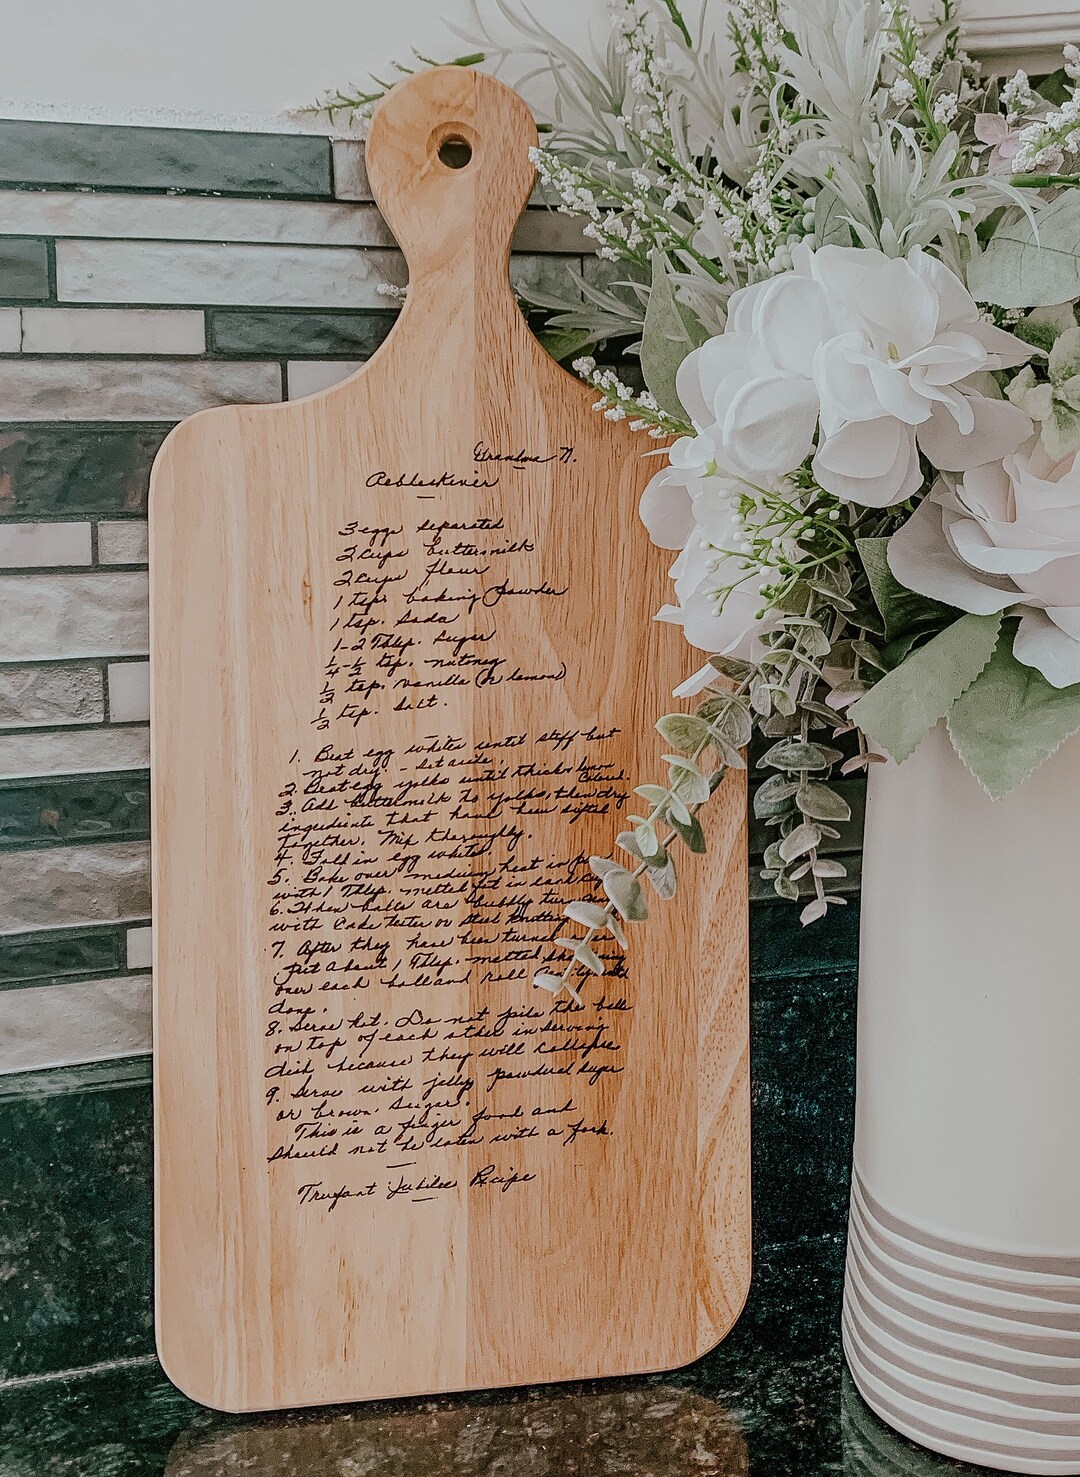 Grandma N.
Aebleskiver
3 eggs separated
2 Cups buttermilk
2 cups flour
1 tsp. baking powder
1 tsp. Soda
1-2 Tblsp. Sugar
1/4-1/2 tsp. nutmeg
1/2 tsp. vanilla (or lemon)
1/2 tsp. Salt.
1. Beat egg whites until stiff but
not dry. - Set aside.
2. Beat egg yolks until thick & lemon
Colored.
3. Add Buttermilk to yolks, then dry
ingredients that have been sifted
together. Mix thoroughly.
4. Fold in egg whites.
5. Bake over medium heat in
with 1 Tblsp. melted fat in each
6. When balls are bubbly turn
with Cake tester or steel knitting
7. After they have been turned
put about 1 Tblsp. melted
over each ball and roll
done.
8. Serve hot. Do not pile the balls
on top of each other in serving
dish because they will collapse
9. Serve with jelly powdered sugar
or brown sugar.
This is a finger food and
should not be eaten with a fork.
Trufant Jubilee Recipe